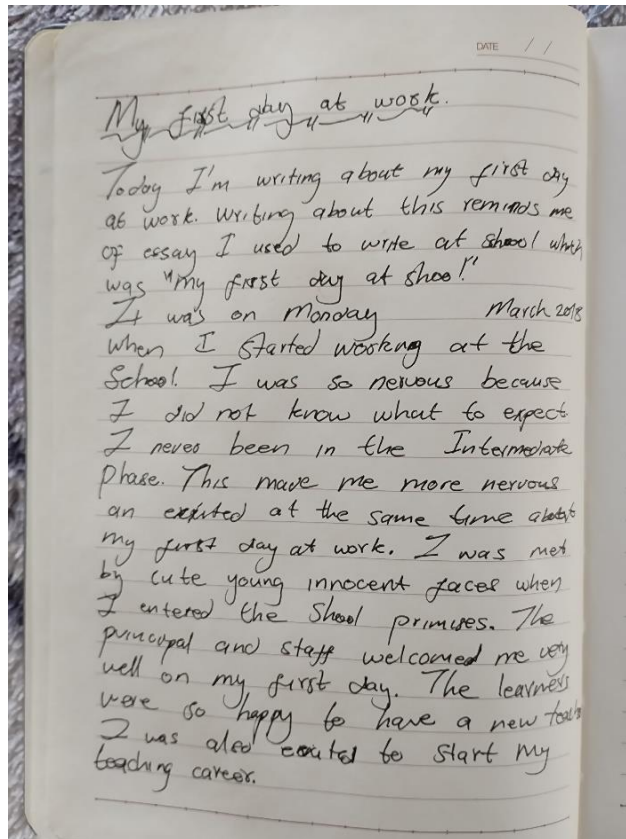 DATE / /
My first day at work.
Today I'm writing about my first day
at work. Writing about this reminds me
of essay I used to write at shool which
was "my first day at shool"
It was on Monday March 2018
when I started working at the
School. I was so nervous because
I did not know what to expect
I never been in the Intermediate
Phase. This made me more nervous
an exited at the same time about
my first day at work. I was met
by cute young innocent faces when
I entered the Shool primises. The
principal and staff welcomed me very
well on my first day. The learners
were so happy to have a new teacher
I was also exited to start my
teaching career.